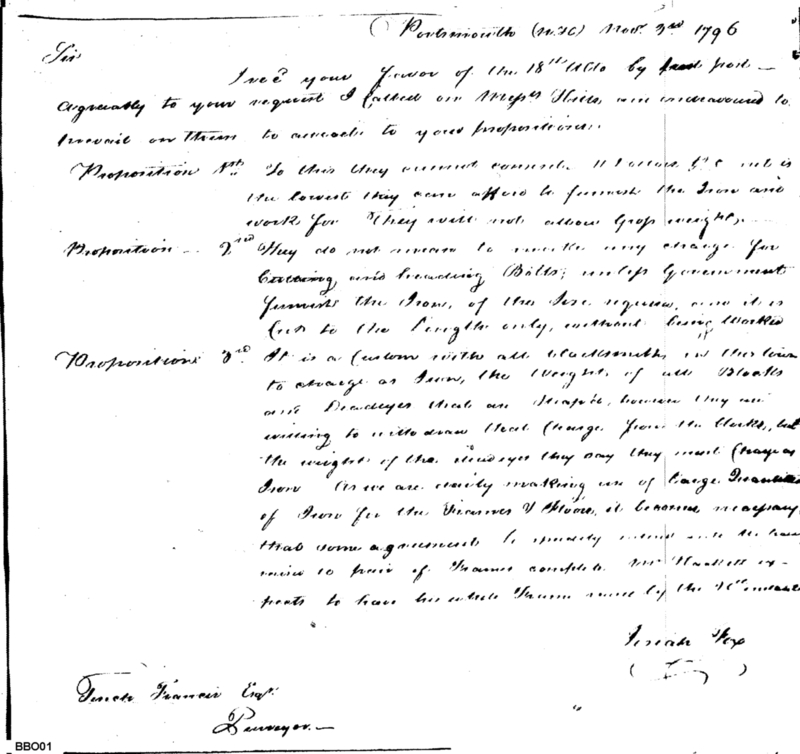 Portsmouth (N.H.) Nov. 3rd 1796
Sir
I recd your favor of the 18th Ulto by post
agreeably to your request I called on Messrs Hills, and endeavoured to
prevail on them to accede to your propositions.
Proposition 1st. To this they cannot consent. 11
the lowest they can afford to furnish the Iron and
work for. They will not allow Gross weight,
Proposition 2nd They do not mean to make any charge for
Cutting and heading Bolts; unless Government
furnish the Iron, of the Size required, and it is
Cut to the Lengths only, without being Worked
Propositions 3rd. It is a Custom with all blacksmiths in this town
to charge as Iron, the Weight of all Blocks
and Deadeyes that are Strap'd, however they are
willing to withdraw that Charge from the blocks, but
the weight of the deadeyes they say they must Charge as
Iron As we are daily making use of large Quantities
of Iron for the Frames & Floors, it becomes necessary
that some agreement be speedily
raised 10 pair of Frames complete. Mr Hackett ex-
pects to have his whole Frame raised by the
Josiah Fox
Tench Francis Esqr.
Purveyor.
BBO01